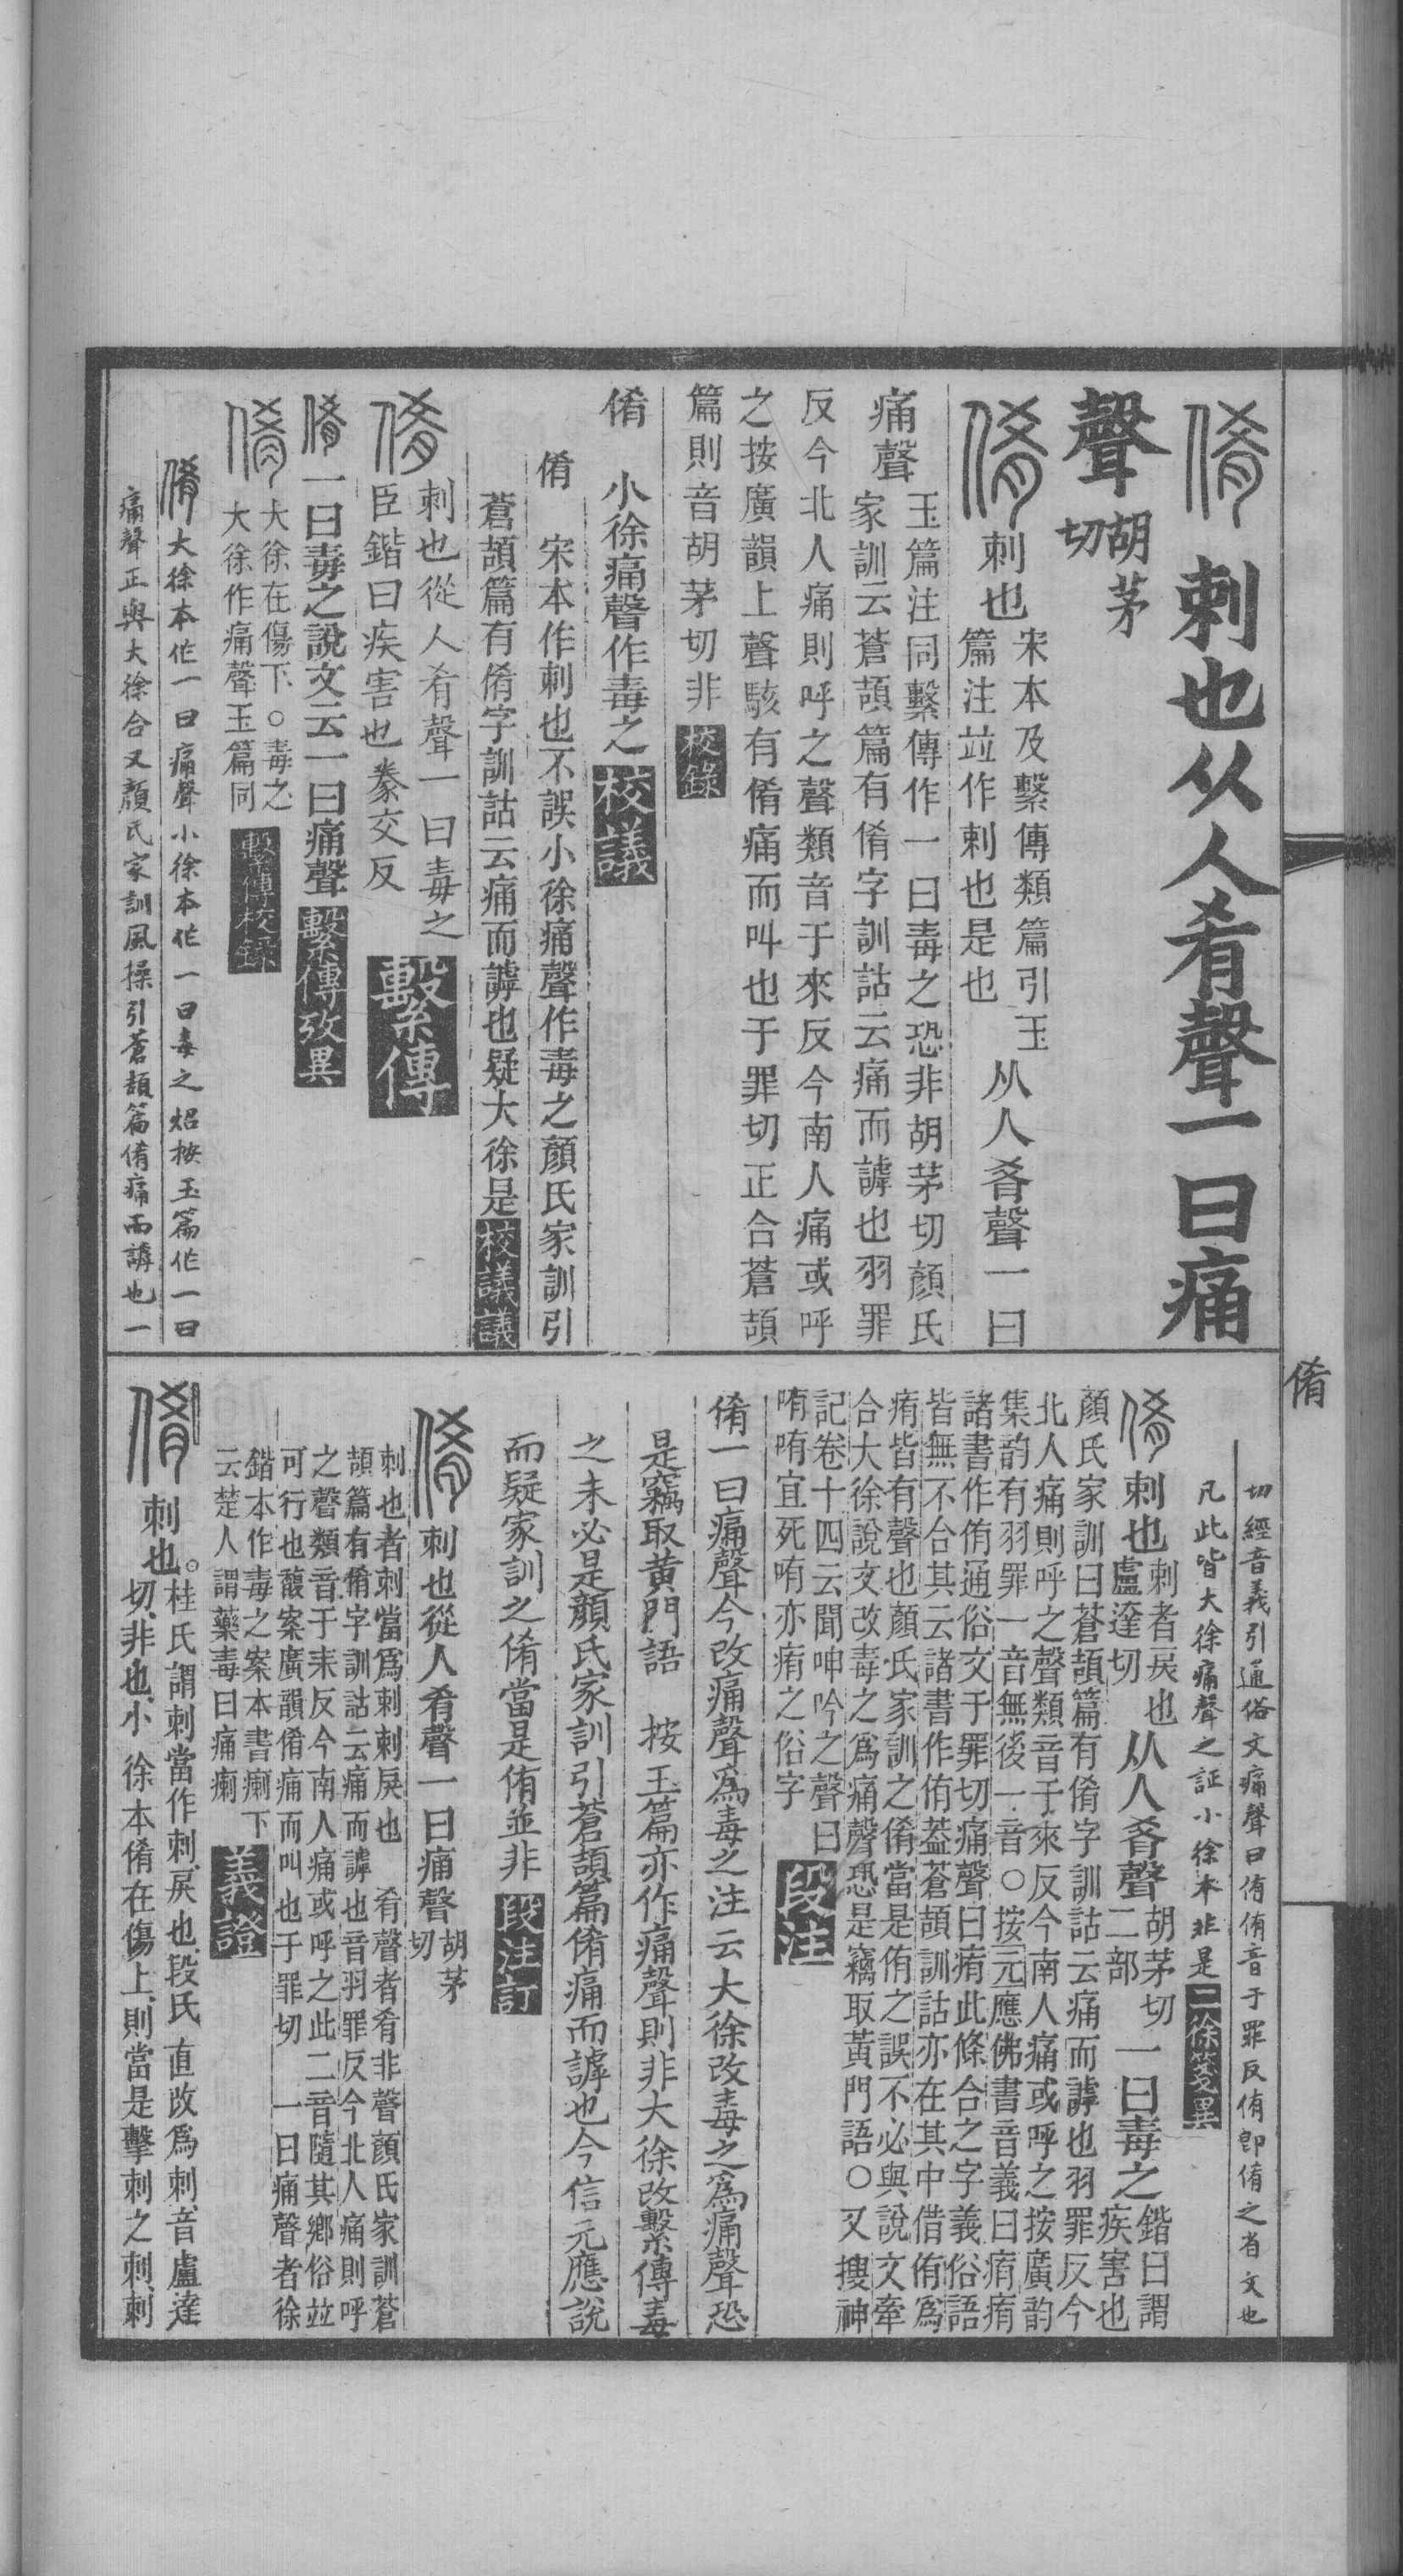 㑾 刺也从人肴聲一曰痛
聲胡茅切
㑾刺也宋本及繫傳類篇引玉篇注竝作刺也是也从人肴聲一曰
痛聲玉篇注同繫傳作一曰毒之恐非胡茅切顏氏家訓云蒼頡篇有㑾字訓詁云痛而謼也羽罪
反今北人痛則呼之聲類音于來反今南人痛或呼
之按廣韻上聲駭有㑾痛而叫也于罪切正合蒼頡
篇則音胡茅切非校錄
㑾 小徐痛聲作毒之校議
㑾 宋本作刺也不誤小徐痛聲作毒之顏氏家訓引
蒼頡篇有㑾字訓詁云痛而謼也疑大徐是校議議
㑾刺也從人肴聲一曰毒之臣鍇曰疾害也豢交反繫傳
㑾一曰毒之說文云一曰痛聲繫傳攷異
㑾大徐在傷下○毒之大徐作痛聲玉篇同繫傳校錄
㑾大徐本作一曰痛聲小徐本作一曰毒之炤按玉篇作一曰
痛聲正與大徐合又顏氏家訓風操引蒼頡篇㑾痛而謼也一
㑾
切經音義引通俗文痛聲曰侑侑音于罪反侑卽㑾之省文也
凡此皆大徐痛聲之証小徐本非是二徐箋異
㑾刺也刺者戾也盧達切从人肴聲胡茅切二部一曰毒之鍇曰謂疾害也
顏氏家訓曰蒼頡篇有㑾字訓詁云痛而謼也羽罪反今
北人痛則呼之聲類音于來反今南人痛或呼之按廣韵
集韵有羽罪一音無後一音○按元應佛書音義曰痏痏
諸書作侑通俗文于罪切痛聲曰痏此條合之字義俗語
皆無不合其云諸書作侑葢蒼頡訓詁亦在其中借侑爲
痏皆有聲也顏氏家訓之㑾當是侑之誤不必與說文牽
合大徐說文改毒之爲痛聲恐是竊取黃門語○又搜神
記卷十四云聞呻吟之聲曰
哊哊宜死哊亦痏之俗字段注
㑾一曰痛聲今改痛聲爲毒之注云大徐改毒之爲痛聲恐
是竊取黃門語 按玉篇亦作痛聲則非大徐改繫傳毒
之未必是顏氏家訓引蒼頡篇㑾痛而謼也今信元應說
而疑家訓之㑾當是侑並非段注訂
㑾刺也從人肴聲一曰痛聲胡茅切
刺也者刺當爲剌剌戾也 肴聲者肴非聲顏氏家訓蒼
頡篇有㑾字訓詁云痛而謼也音羽罪反今北人痛則呼
之聲類音于耒反今南人痛或呼之此二音隨其鄉俗竝
可行也馥案廣韻㑾痛而叫也于罪切 一曰痛聲者徐
鍇本作毒之案本書瘌下
云楚人謂藥毒曰痛瘌義證
㑾 刺也。桂氏謂刺當作剌戾也段氏直改爲剌音盧達
切非也小徐本㑾在傷上則當是擊刺之刺刺